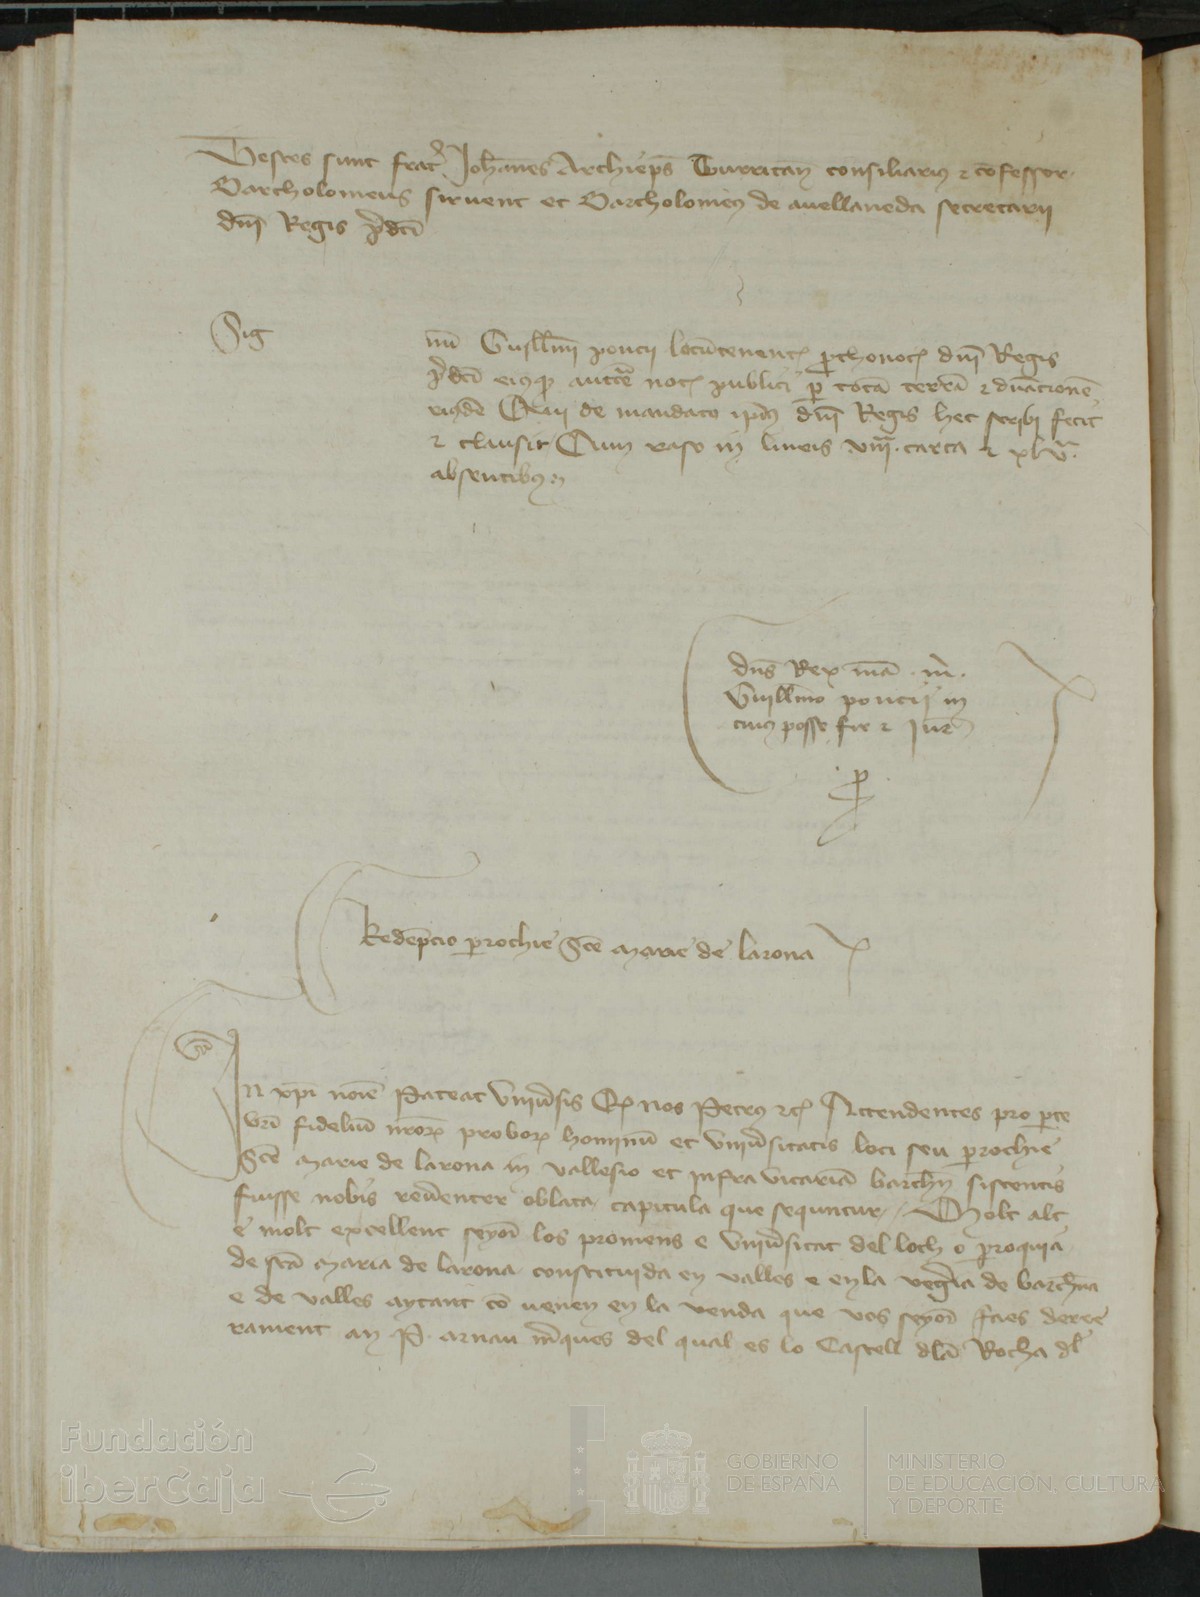 Testes sunt frat̉ Joh̄anes Archiep̄s Turritan̄ consiliariꝰ ⁊ cōfessor.
Bartholomeus siruent et Bartholomeꝰ de auellaneda secretarii
dnī Regis p̄dcī
Sig
nū Guill̄mi poncii locūtenenc̄ ꝓthonot̄ dnī Regis
p̄dcī eiusꝙ auctē not̄ publici ꝑ totā terrā ⁊ dnācionē
eiusdē Qui de mandato ipīꝰ dnī Regis hec scribi fecit
⁊ clausit Cum raso in lineis viiiª. carta ⁊ xlvª.
absentibꝰ
dn̄s Rex mā . m.
Guill̄mo poncii in
cuiꝰ posse fir ⁊ Jur
ꝑ
Redēpcio ꝑrochie Sc̄e Marie de larona
IN xp̄i noīe Pateat Vniu̓sis Qd̄ nos Petrus ⁊c̄ Attendentes pro ꝑte
vrī fideliū nr̄oꝝ proboꝝ hominū et vniu̓sitatis loci seu ꝑrochie
Sc̄e Marie de larona in vallesio et infra vicariā barchn̄ sistentis
fuisse nobis reu̓enter oblata capitula que sequntur / Molt alt
e molt excellent seyor̄ los promens e vniu̓sitat del loch o ꝑroquia
de scā Maria de larona constituida en valles e en la veg̉ia de barch̄na
e de valles aytant cō venen en la venda que vos seyor̄ faes derre
rament an P. arnau m̄ques del qual es lo Castell dla Rocha dl̄
Fundación
iberCaja
GOBIERNO
DE ESPAÑA
MINISTERIO
DE EDUCACIÓN, CULTURA
Y DEPORTE